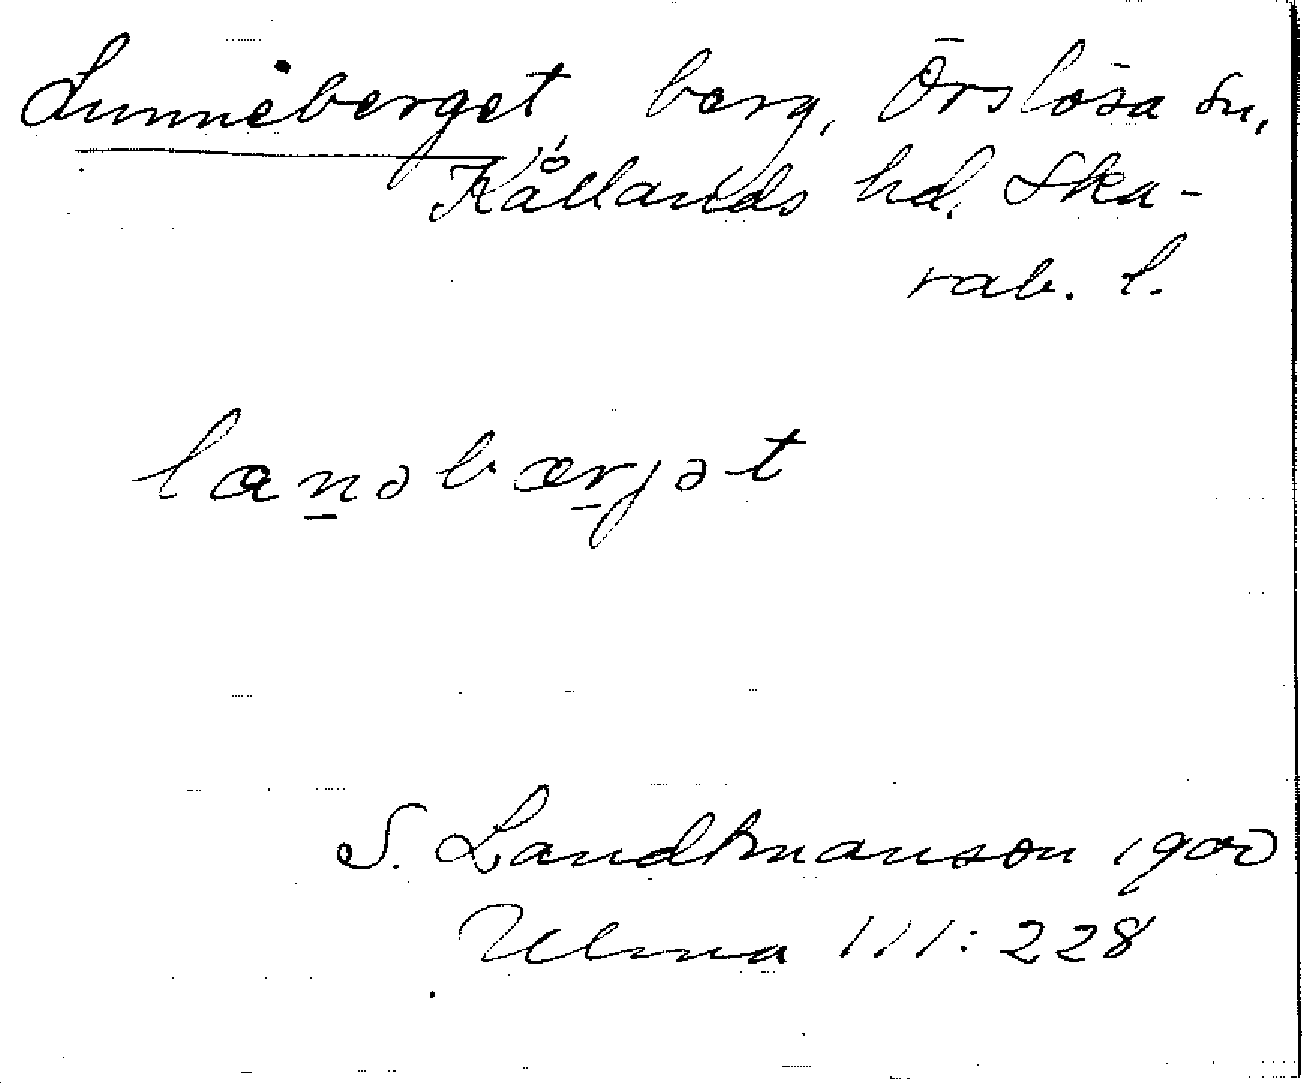 Lunneberget, berg, Örslösa sn,
Kållands hd. Ska-
rab. l.
lanəbærjət
S. Landtmanson 1900
Ulma 111:228